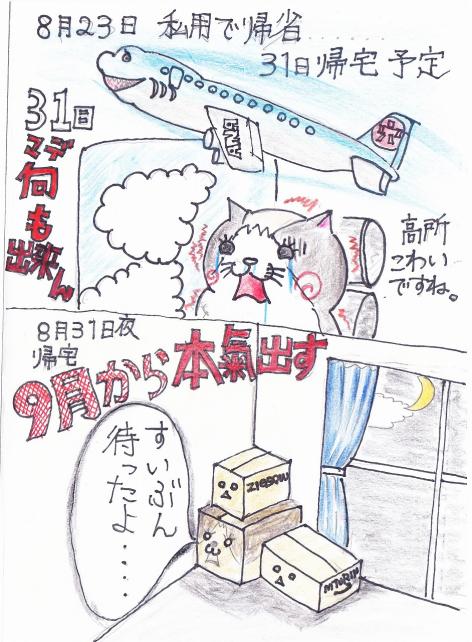 8月23日 私用で帰省……
31日帰宅予定
31日
マデ
何も
出来ん
ANA
高所
こわい
ですね。
8月31日夜
帰宅
9月から本氣出す
すいぶん
待ったよ....